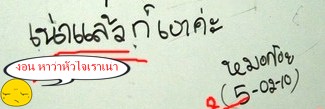 เน่าแล้วก็เอาค่ะ
งอน หาว่าหัวใจเราเน่า
หมอก้อย
(5-02-10)